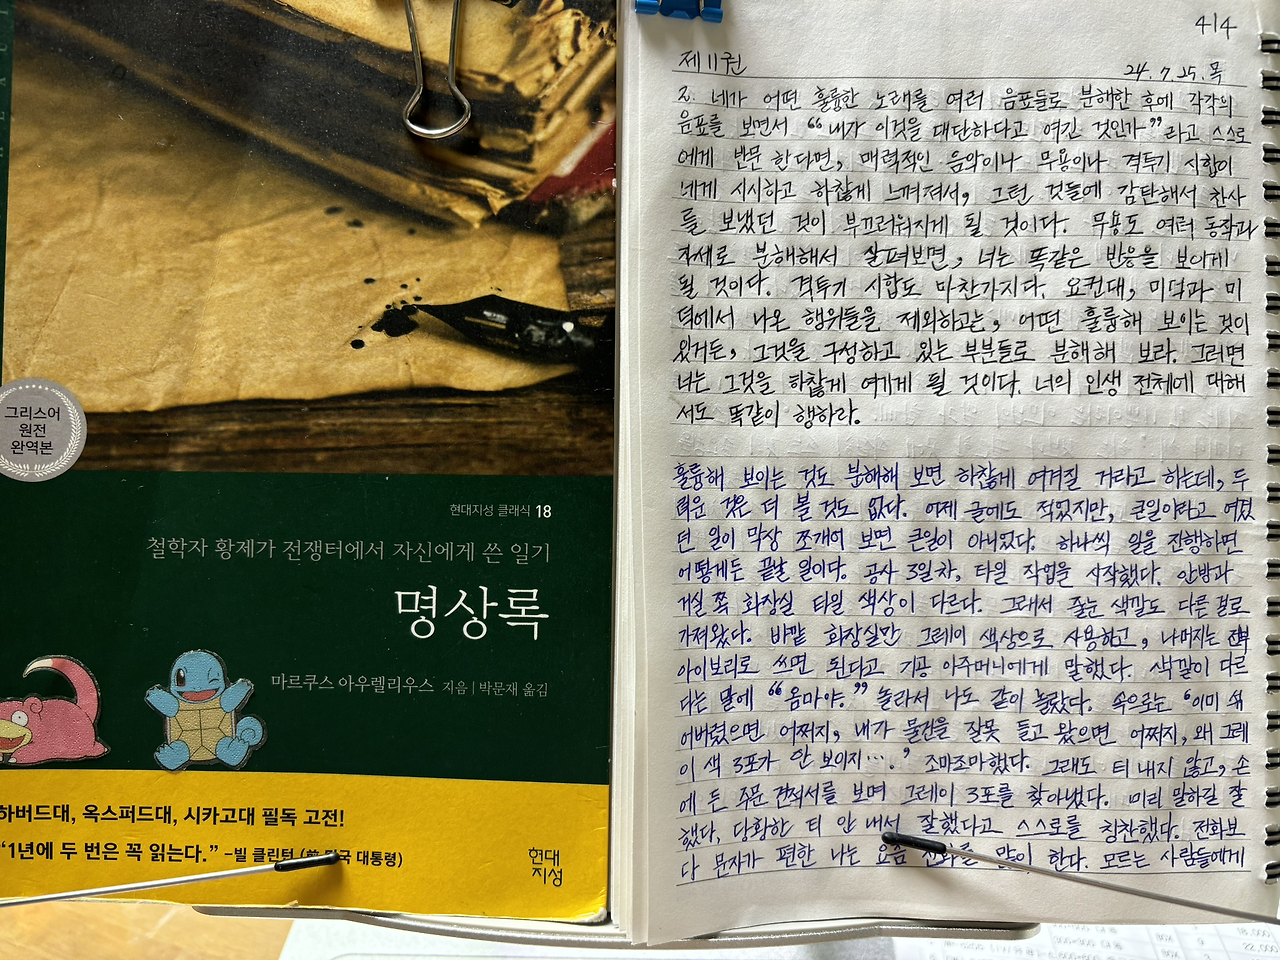 그리스어
원전
완역본
현대지성 클래식 18
철학자 황제가 전쟁터에서 자신에게 쓴 일기
명상록
마르쿠스 아우렐리우스 지음 | 박문재 옮김
하버드대, 옥스퍼드대, 시카고대 필독 고전!
“1년에 두 번은 꼭 읽는다.” –빌 클린턴 (前 미국 대통령)
현대
지성
414
제11권
24. 7. 25. 목
2. 네가 어떤 훌륭한 노래를 여러 음표들로 분해한 후에 각각의
음표를 보면서 “내가 이것을 대단하다고 여긴 것인가”라고 스스로
에게 반문 한다면, 매력적인 음악이나 무용이나 격투기 시합이
네게 시시하고 하찮게 느껴져서, 그런 것들에 감탄해서 찬사
를 보냈던 것이 부끄러워지게 될 것이다. 무용도 여러 동작과
자세로 분해해서 살펴보면, 너는 똑같은 반응을 보이게
될 것이다. 격투기 시합도 마찬가지다. 요컨대, 미덕과 미
덕에서 나온 행위들을 제외하고는, 어떤 훌륭해 보이는 것이
있거든, 그것을 구성하고 있는 부분들로 분해해 보라. 그러면
너는 그것을 하찮게 여기게 될 것이다. 너의 인생 전체에 대해
서도 똑같이 행하라.
훌륭해 보이는 것도 분해해 보면 하찮게 여겨질 거라고 하는데, 두
려운 것은 더 볼 것도 없다. 어제 글에도 적었지만, 큰일이라고 여겼
던 일이 막상 쪼개어 보면 큰일이 아니었다. 하나씩 일을 진행하면
어떻게든 끝날 일이다. 공사 3일차, 타일 작업을 시작했다. 안방과
거실 쪽 화장실 타일 색상이 다르다. 그래서 줄눈 색깔도 다른 걸로
가져왔다. 바깥 화장실만 그레이 색상으로 사용하고, 나머지는 전부
아이보리로 쓰면 된다고 기공 아주머니에게 말했다. 색깔이 다르
다는 말에 “옴마야.” 놀라서 나도 같이 놀랐다. 속으로는 ‘이미 섞
어버렸으면 어쩌지, 내가 물건을 잘못 들고 왔으면 어쩌지, 왜 그레
이 색 3포가 안 보이지….’ 조마조마했다. 그래도 티 내지 않고, 손
에 든 주문 견적서를 보며 그레이 3포를 찾아냈다. 미리 말하길 잘
했다, 당황한 티 안 내서 잘했다고 스스로를 칭찬했다. 전화보
다 문자가 편한 나는 요즘 전화를 많이 한다. 모르는 사람들에게
18,000
22,000